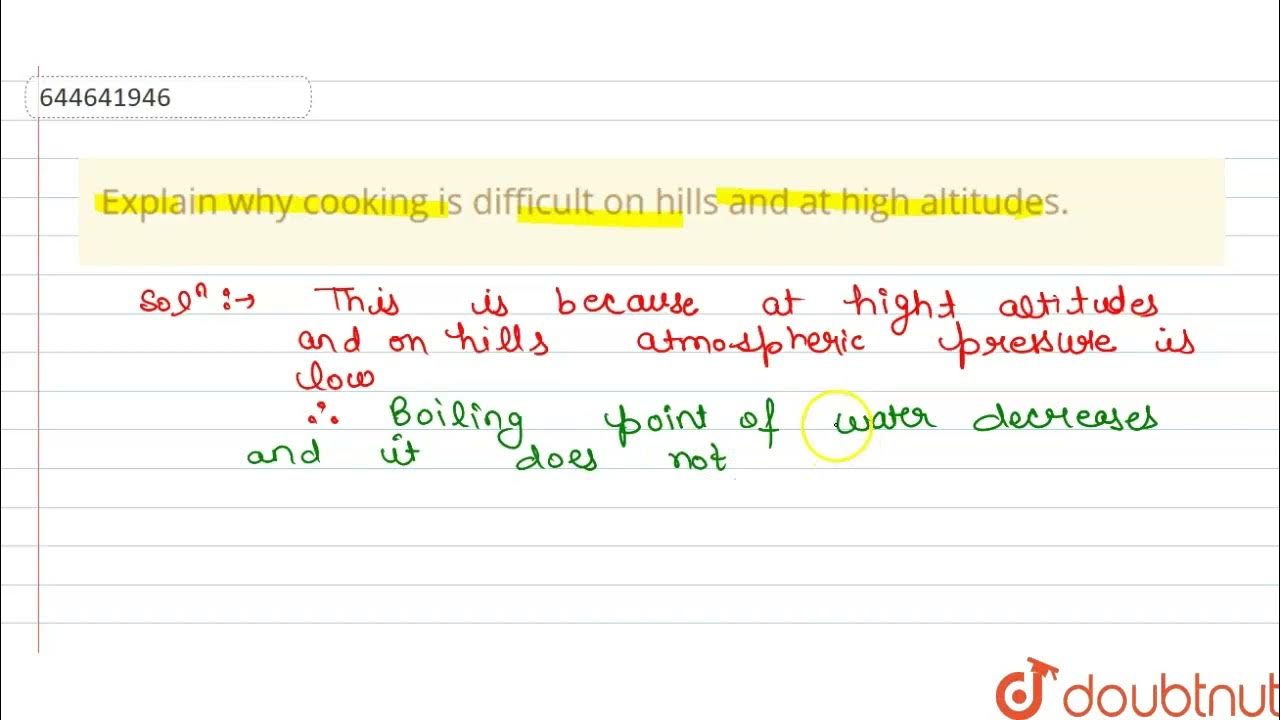 644641946
Explain why cooking is difficult on hills and at high altitudes.
Solⁿ :→ This is because at hight altitudes
and on hills atmospheric pressure is
low
∴ Boiling point of water decreases
and it does not
doubtnut